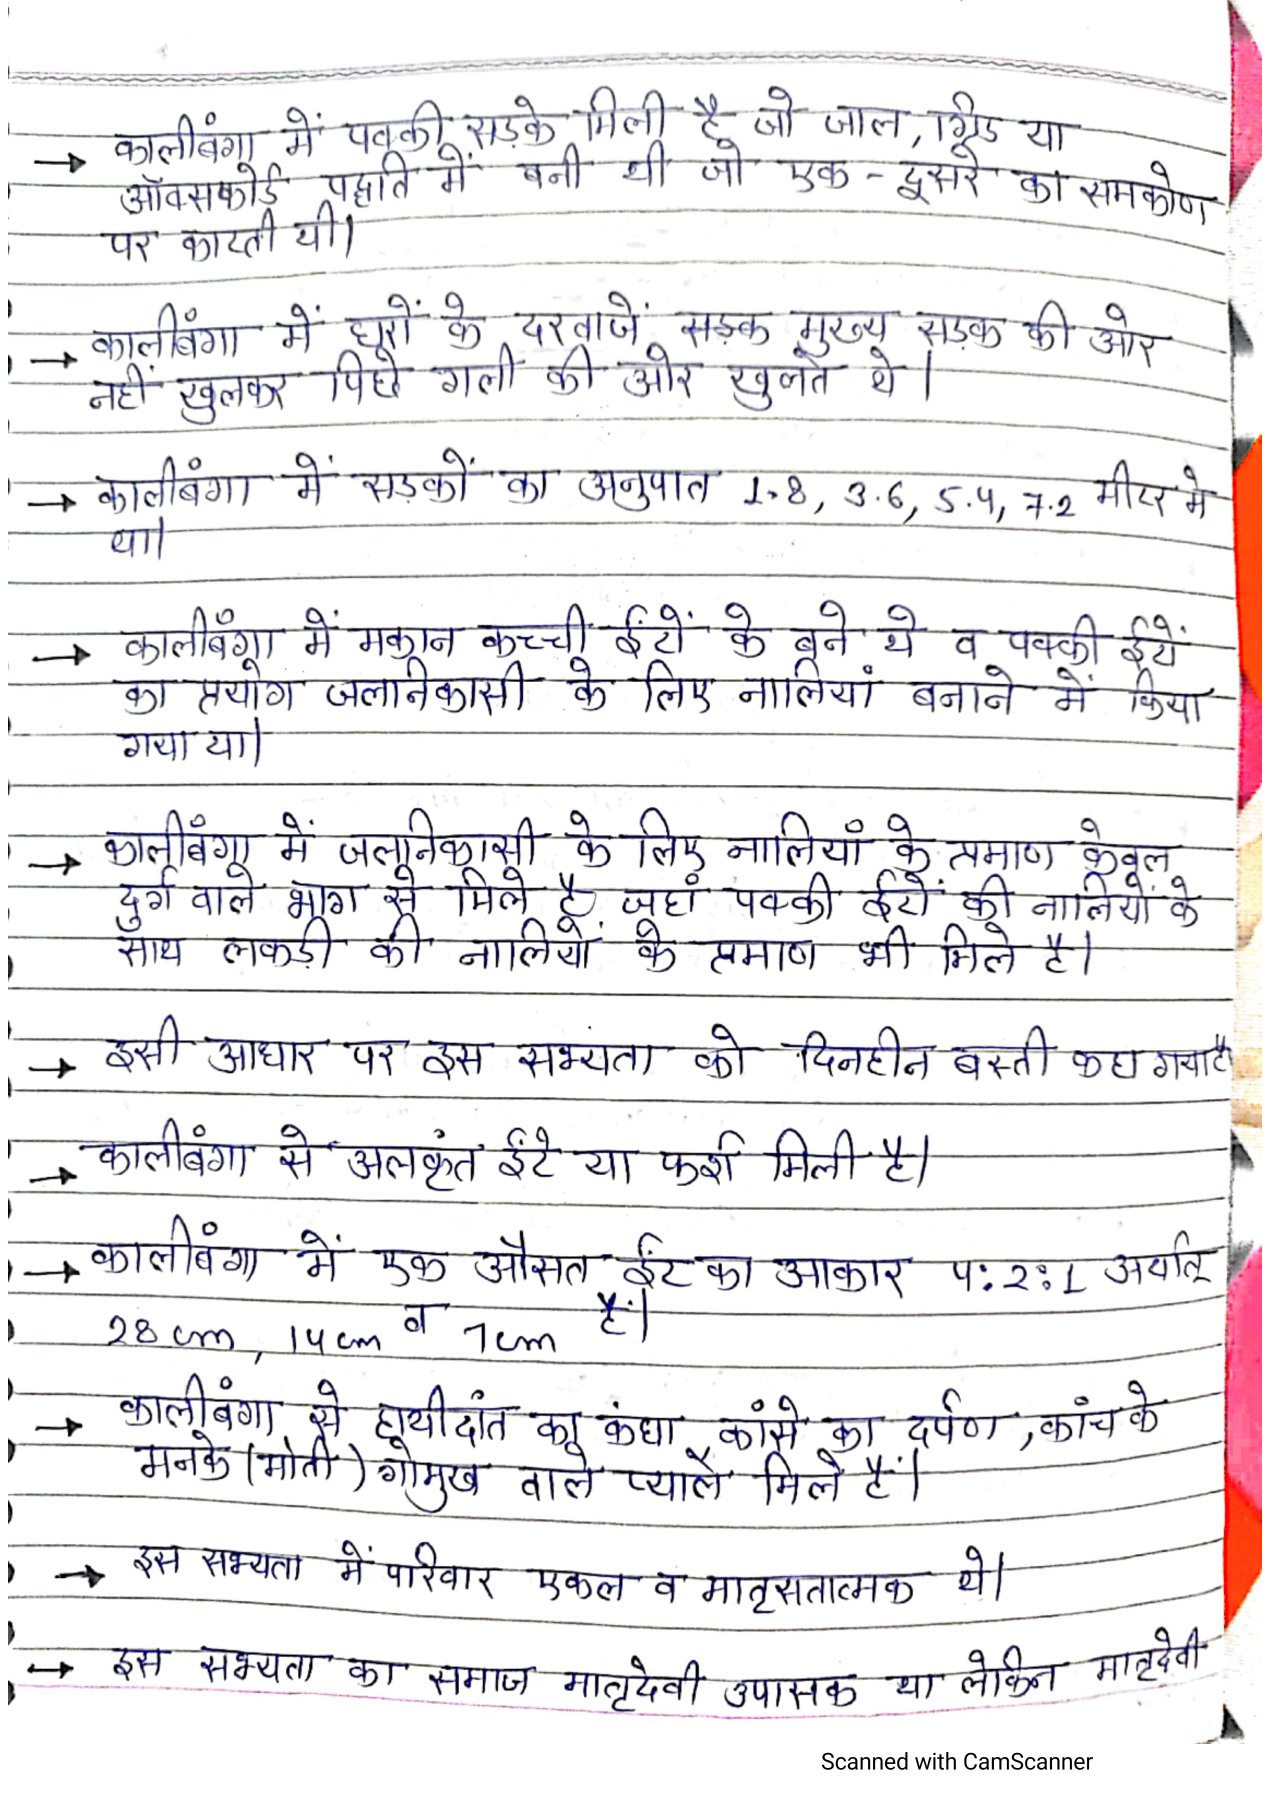 → कालीबंगा में पक्की सड़के मिली है जो जाल, ग्रिड या
ऑक्सफोर्ड पद्धति में बनी थी जो एक-दूसरे को समकोण
पर काटती थी।
→ कालीबंगा में घरों के दरवाजें सड़क मुख्य सड़क की ओर
नहीं खुलकर पिछे गली की ओर खुलते थे।
→ कालीबंगा में सड़कों का अनुपात 1.8, 3.6, 5.4, 7.2 मीटर मे
था।
→ कालीबंगा में मकान कच्ची ईंटों के बने थे व पक्की ईटों
का प्रयोग जलनिकासी के लिए नालियां बनाने में किया
गया था।
→ कालीबंगा में जलनिकासी के लिए नालियाँ के प्रमाण केवल
दुर्ग वाले भाग से मिले है जहां पक्की ईटों की नालियों के
साथ लकड़ी की नालियों के प्रमाण भी मिले है।
→ इसी आधार पर इस सभ्यता को दिनहीन बस्ती कहा गया है
→ कालीबंगा से अलकृंत ईंटे या फर्श मिली है।
→ कालीबंगा में एक औसत ईंट का आकार 4:2:1 अर्थात्
28 cm, 14 cm व 7 cm हैं।
→ कालीबंगा से हाथीदांत का कंघा, कांसे का दर्पण, कांच के
मनके (मोती) गोमुख वाले प्याले मिले हैं।
→ इस सभ्यता में परिवार एकल व मातृसतात्मक थे।
→ इस सभ्यता का समाज मातृदेवी उपासक था लेकिन मातृदेवी
Scanned with CamScanner